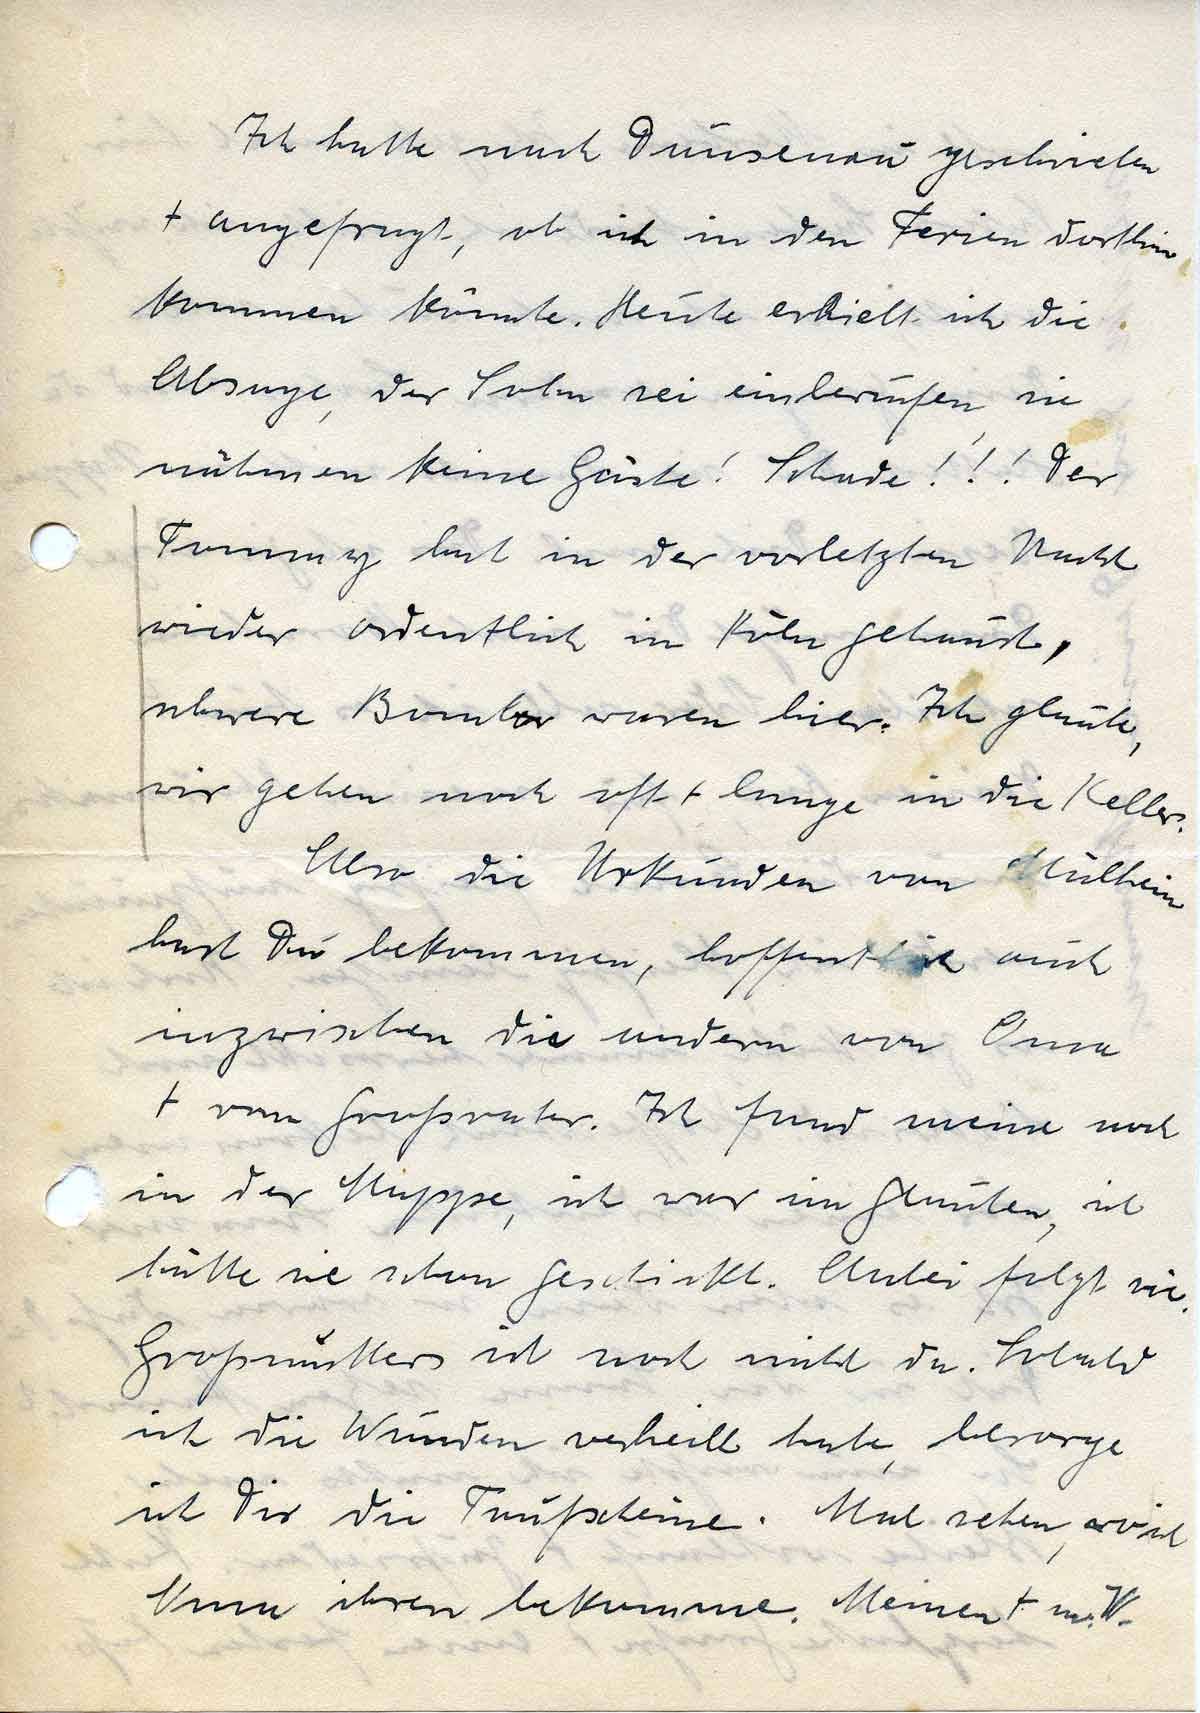 Ich hatte nach Dausenau geschrieben
+ angefragt, ob ich in den Ferien dorthin
kommen könnte. Heute erhielt ich die
Absage, der Sohn sei einberufen, sie
nähmen keine Gäste! Schade!!! Der
Tommy hat in der vorletzten Nacht
wieder ordentlich in Köln gehaust,
schwere Bomber waren hier. Ich glaube,
wir gehen noch oft + lange in die Keller.
Also die Urkunden von Mülheim
hast Du bekommen, hoffentlich auch
inzwischen die andern von Oma
+ vom Großvater. Ich fand meine noch
in der Mappe, ich war im Glauben, ich
hätte sie schon geschickt. Anbei folgt sie.
Großmutters ist noch nicht da. Sobald
ich die Wunden verheilt habe, besorge
ich Dir die Taufscheine. Mal sehen, wo ich
ihren bekomme. Meinen +